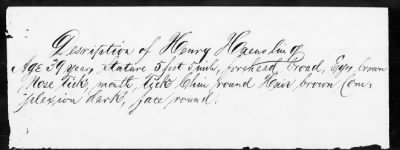 Desription of Henry Haensling
Age 39 years, Stature 5 feet 5 inch, forehead broad, Eyes brown
Nose Tick, month, Tick Chin round Hair brown Com-
plexion dark, face round.